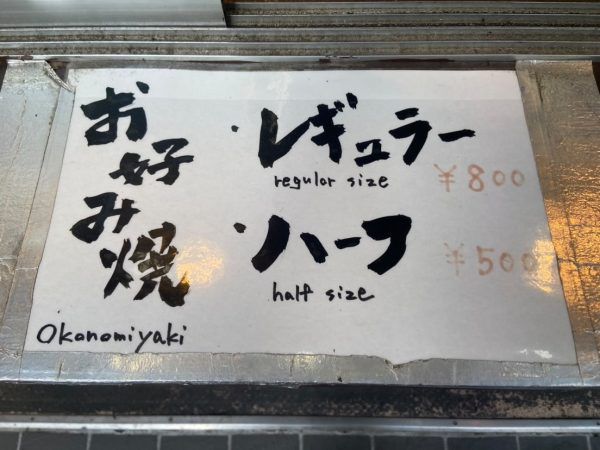 お好み焼
Okonomiyaki
・レギュラー ¥800
regular size
・ハーフ ¥500
half size